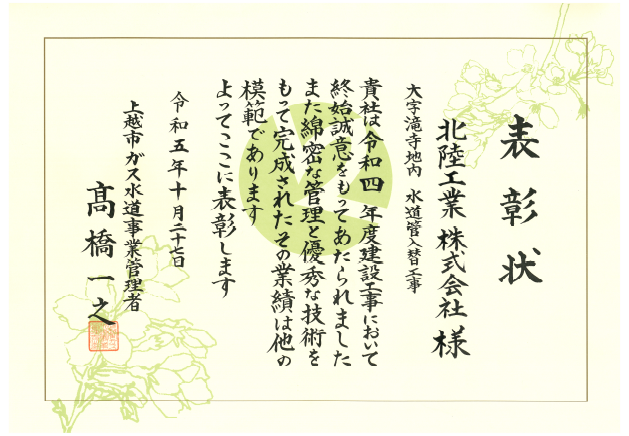 表彰状
北陸工業株式会社 様
大字滝寺地内 水道管入替工事
貴社は令和四年度建設工事において
終始誠意をもってあたられました
また綿密な管理と優秀な技術を
もって完成されたその業績は他の
模範であります
よってここに表彰します
令和五年十月二十七日
上越市ガス水道事業管理者
髙橋一之